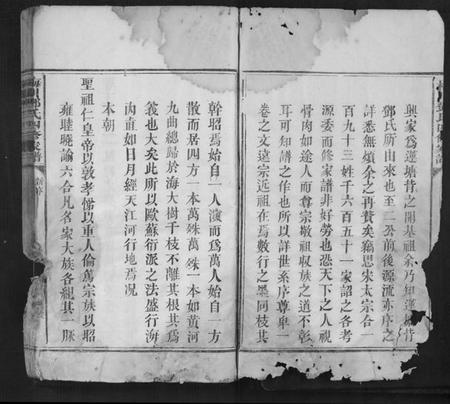 興家爲蓮塘昔之開基祖余乃知蓮塘
鄧氏所由來也至二公前後源流亦序之
詳悉無煩余之再贅矣竊思宋太宗合一
百九十三姓千六百五十一家詔之各考
源委而修家譜非好勞也恐天下之人視
骨肉如途人而尊宗敬祖收族之道不彰
耳可知譜之作也所以詳世系序尊卑一
卷之文遠宗近祖在焉數行之墨同枝共
幹昭焉始自一人演而爲萬人始自一方
散而居四方一本萬殊萬殊一本如黃河
九曲總歸於海大樹千枝不離其根其爲
義也大矣此所以歐蘇衍派之法盛行海
內直如日月經天江河行地焉況
本朝
聖祖仁皇帝以敦孝悌以重人倫萬宗族以昭
雍睦曉諭六合凡名家大族各組其一脈
鄧氏四修家譜